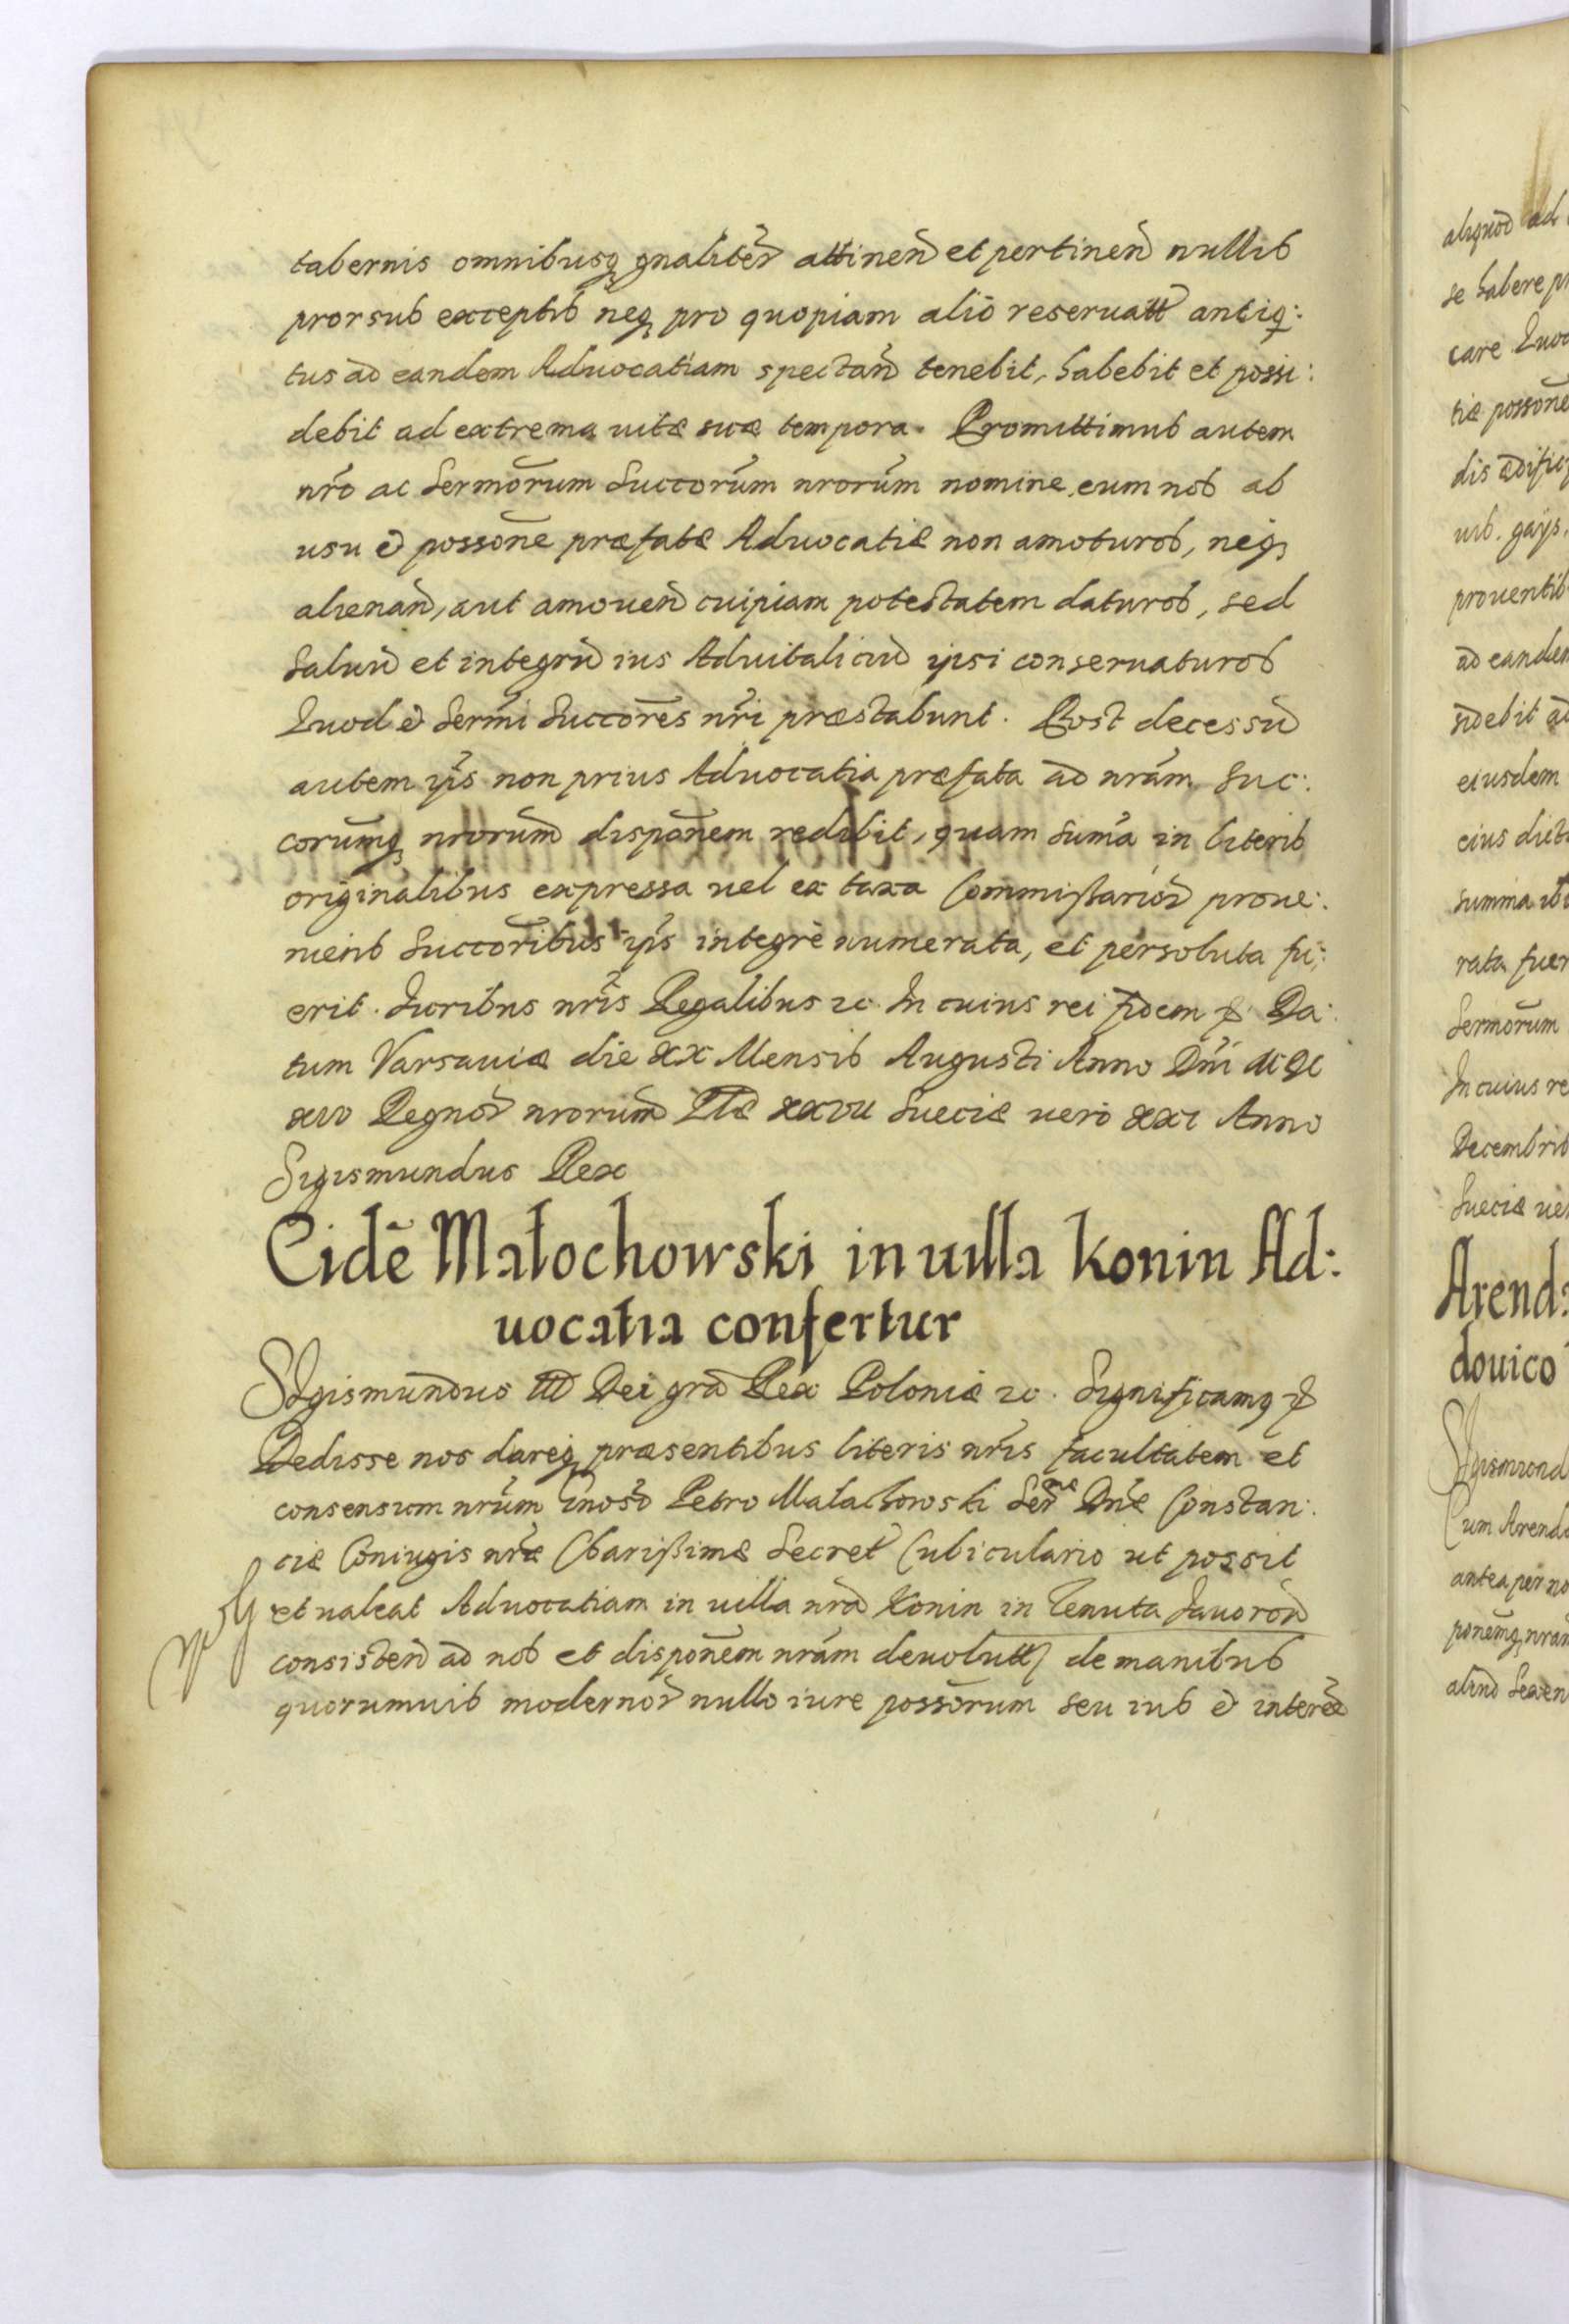 tabernis omnibusq gnaliter attinen et pertinen nullis
prorsus exceptis neq pro quopiam alio reseruatt antiq:
tus ad eandem Aduocatiam spectan tenebit, habebit et possi:
debit ad extrema uitæ suæ tempora. Promittimus autem
nro ac Sermorum Succorum nrorum nomine eum nos ab
usu et possone præfatæ Aduocatiæ non amoturos, neq
alienan, aut amouen cuipiam potestatem daturos, sed
Saluu et integru ius Aduitaliciu ipsi conseruaturos
Quod et Sermi Succores nri præstabunt. Post decessu
autem ipis non prius Aduocatia præfata ad nram Suc:
corumq nrorum disponem redibit, quam suma in literis
originalibus expressa uel ex taxa Commißarior proue:
niens Succoribus ipis integre numerata, et persoluta fu:
erit. Iuribus nris Regalibus etc. In cuius rei fidem etc. Da:
tum Varsauiæ die XX Mensis Augusti Anno Dni MDC
xiv Regnor nrorum Plæ xxvii Sueciæ uero xxi Anno
Sigismundus Rex
Eidē Małochowski in uilla Konin Ad:
uocatia confertur
Sigismundus III Dei gra Rex Poloniæ etc. Significamq etc
Dedisse nos dareq præsentibus literis nris facultatem et
consensum nrum Gnoso Petro Malachowski Serme Dnæ Constan:
ciæ Coniugis nræ Charißimæ Secret Cubiculario ut possit
et ualeat Aduocatiam in uilla nra Konin in Tenuta Iauoron
consisten ad nos et disponem nram deuolutt de manibus
quorumuis modernor nullo iure possorum seu ius et interee
aliquod ad
se habere pr
care Quod
tiæ possone
dis ædific
uis. gays.
prouentib
ad eandem
sidebit ad
eiusdem
eius dict
summa
rata fuer
Sermorum
In cuius re
Decembris
Sueciæ ue
Arend:
douico
Sigismund
Cum Arenda
antea per no
ponemq nram